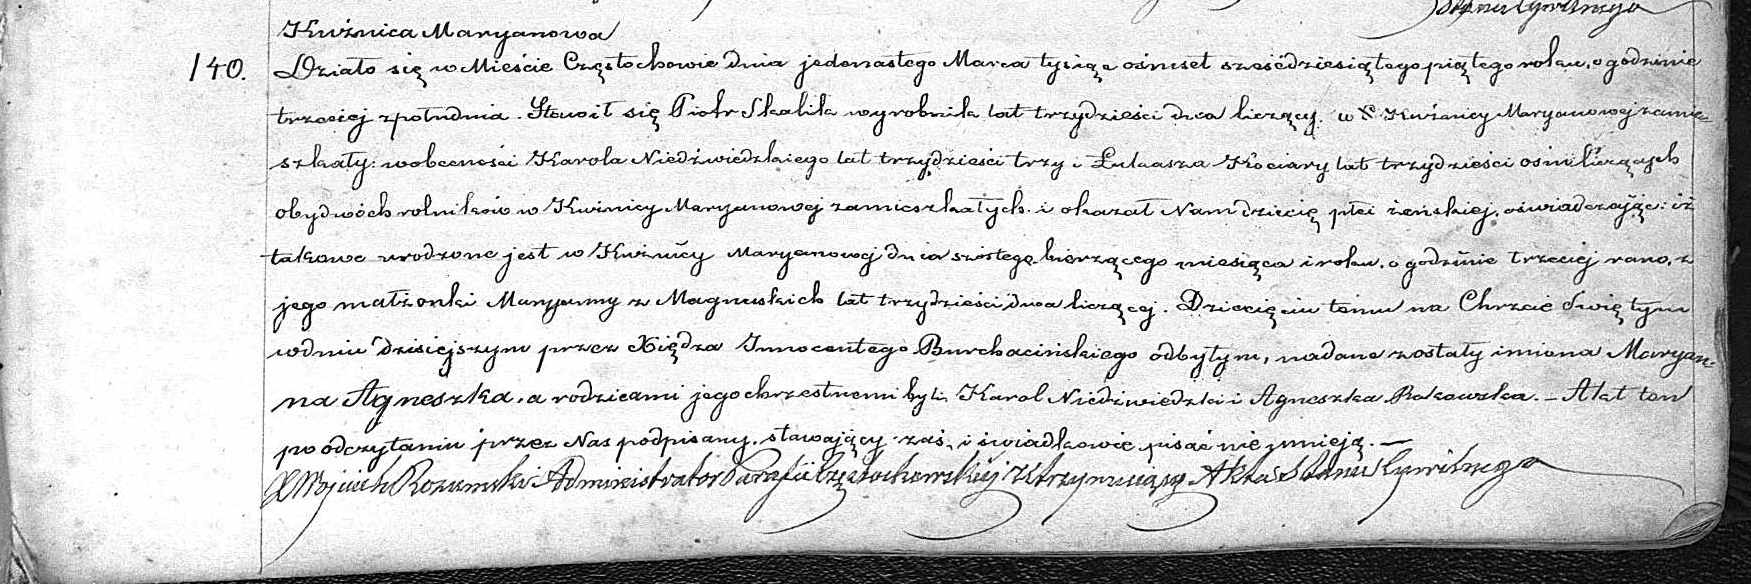 Stanu Cywilnego
Kuźnica Maryanowa
140. Działo się w Mieście Częstochowie dnia jedenastego Marca tysiąc ośmset sześćdziesiątego piątego roku, o godzinie
trzeciej z południa. Stawił się Piotr Skalik wyrobnik lat trzydzieści dwa liczący, w Kuźnicy Maryanowej zamie-
szkały: w obecności Karola Niedźwiedzkiego lat trzydzieści trzy i Łukasza Kociary lat trzydzieści ośm liczących
obydwóch rolników w Kuźnicy Maryanowej zamieszkałych. i okazał Nam dziecię płci żeńskiej, oświadczając: iż
takowe urodzone jest w Kuźnicy Maryanowej dnia szóstego bierzącego miesiąca i roku, o godzinie trzeciej rano, z
jego małżonki Maryanny z Magnuskich lat trzydzieści dwa liczącej. Dziecięciu temu na Chrzcie Świętym
w dniu dzisiejszym przez Xiędza Innocentego Burchacińskiego odbytym, nadane zostały imiona Maryan-
na Agneszka, a rodzicami jego chrzestnemi byli, Karol Niedźwiedzki i Agneszka Rakowska. — Akt ten
po odczytaniu przez Nas podpisany, stawający zaś, i świadkowie pisać nie umieją. —
X Wojciech Rozumski Administrator Parafii Częstochowskiej Utrzymujący Akta Stanu Cywilnego